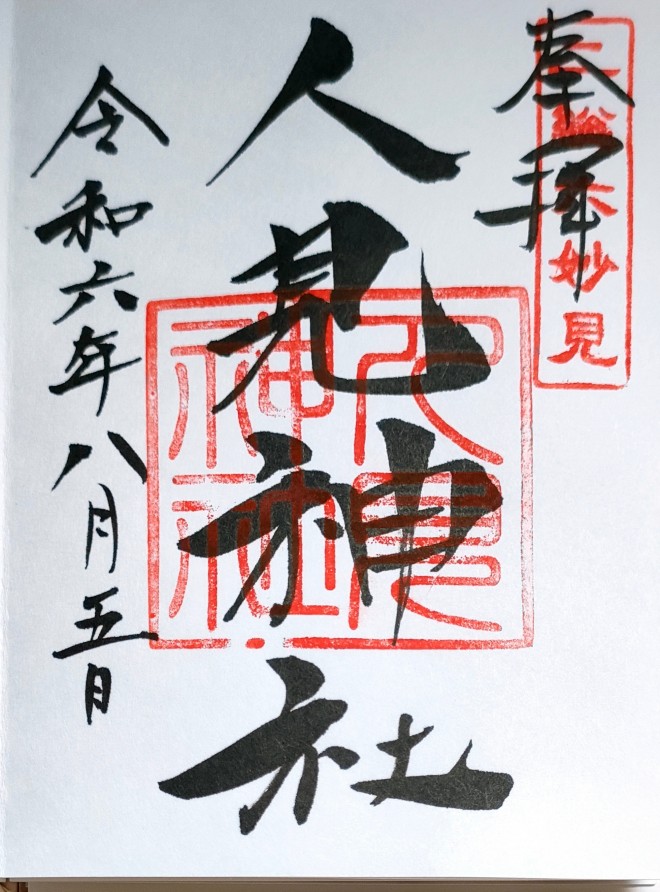 奉拝
妙見
人見神社
人見神社
令和六年八月五日